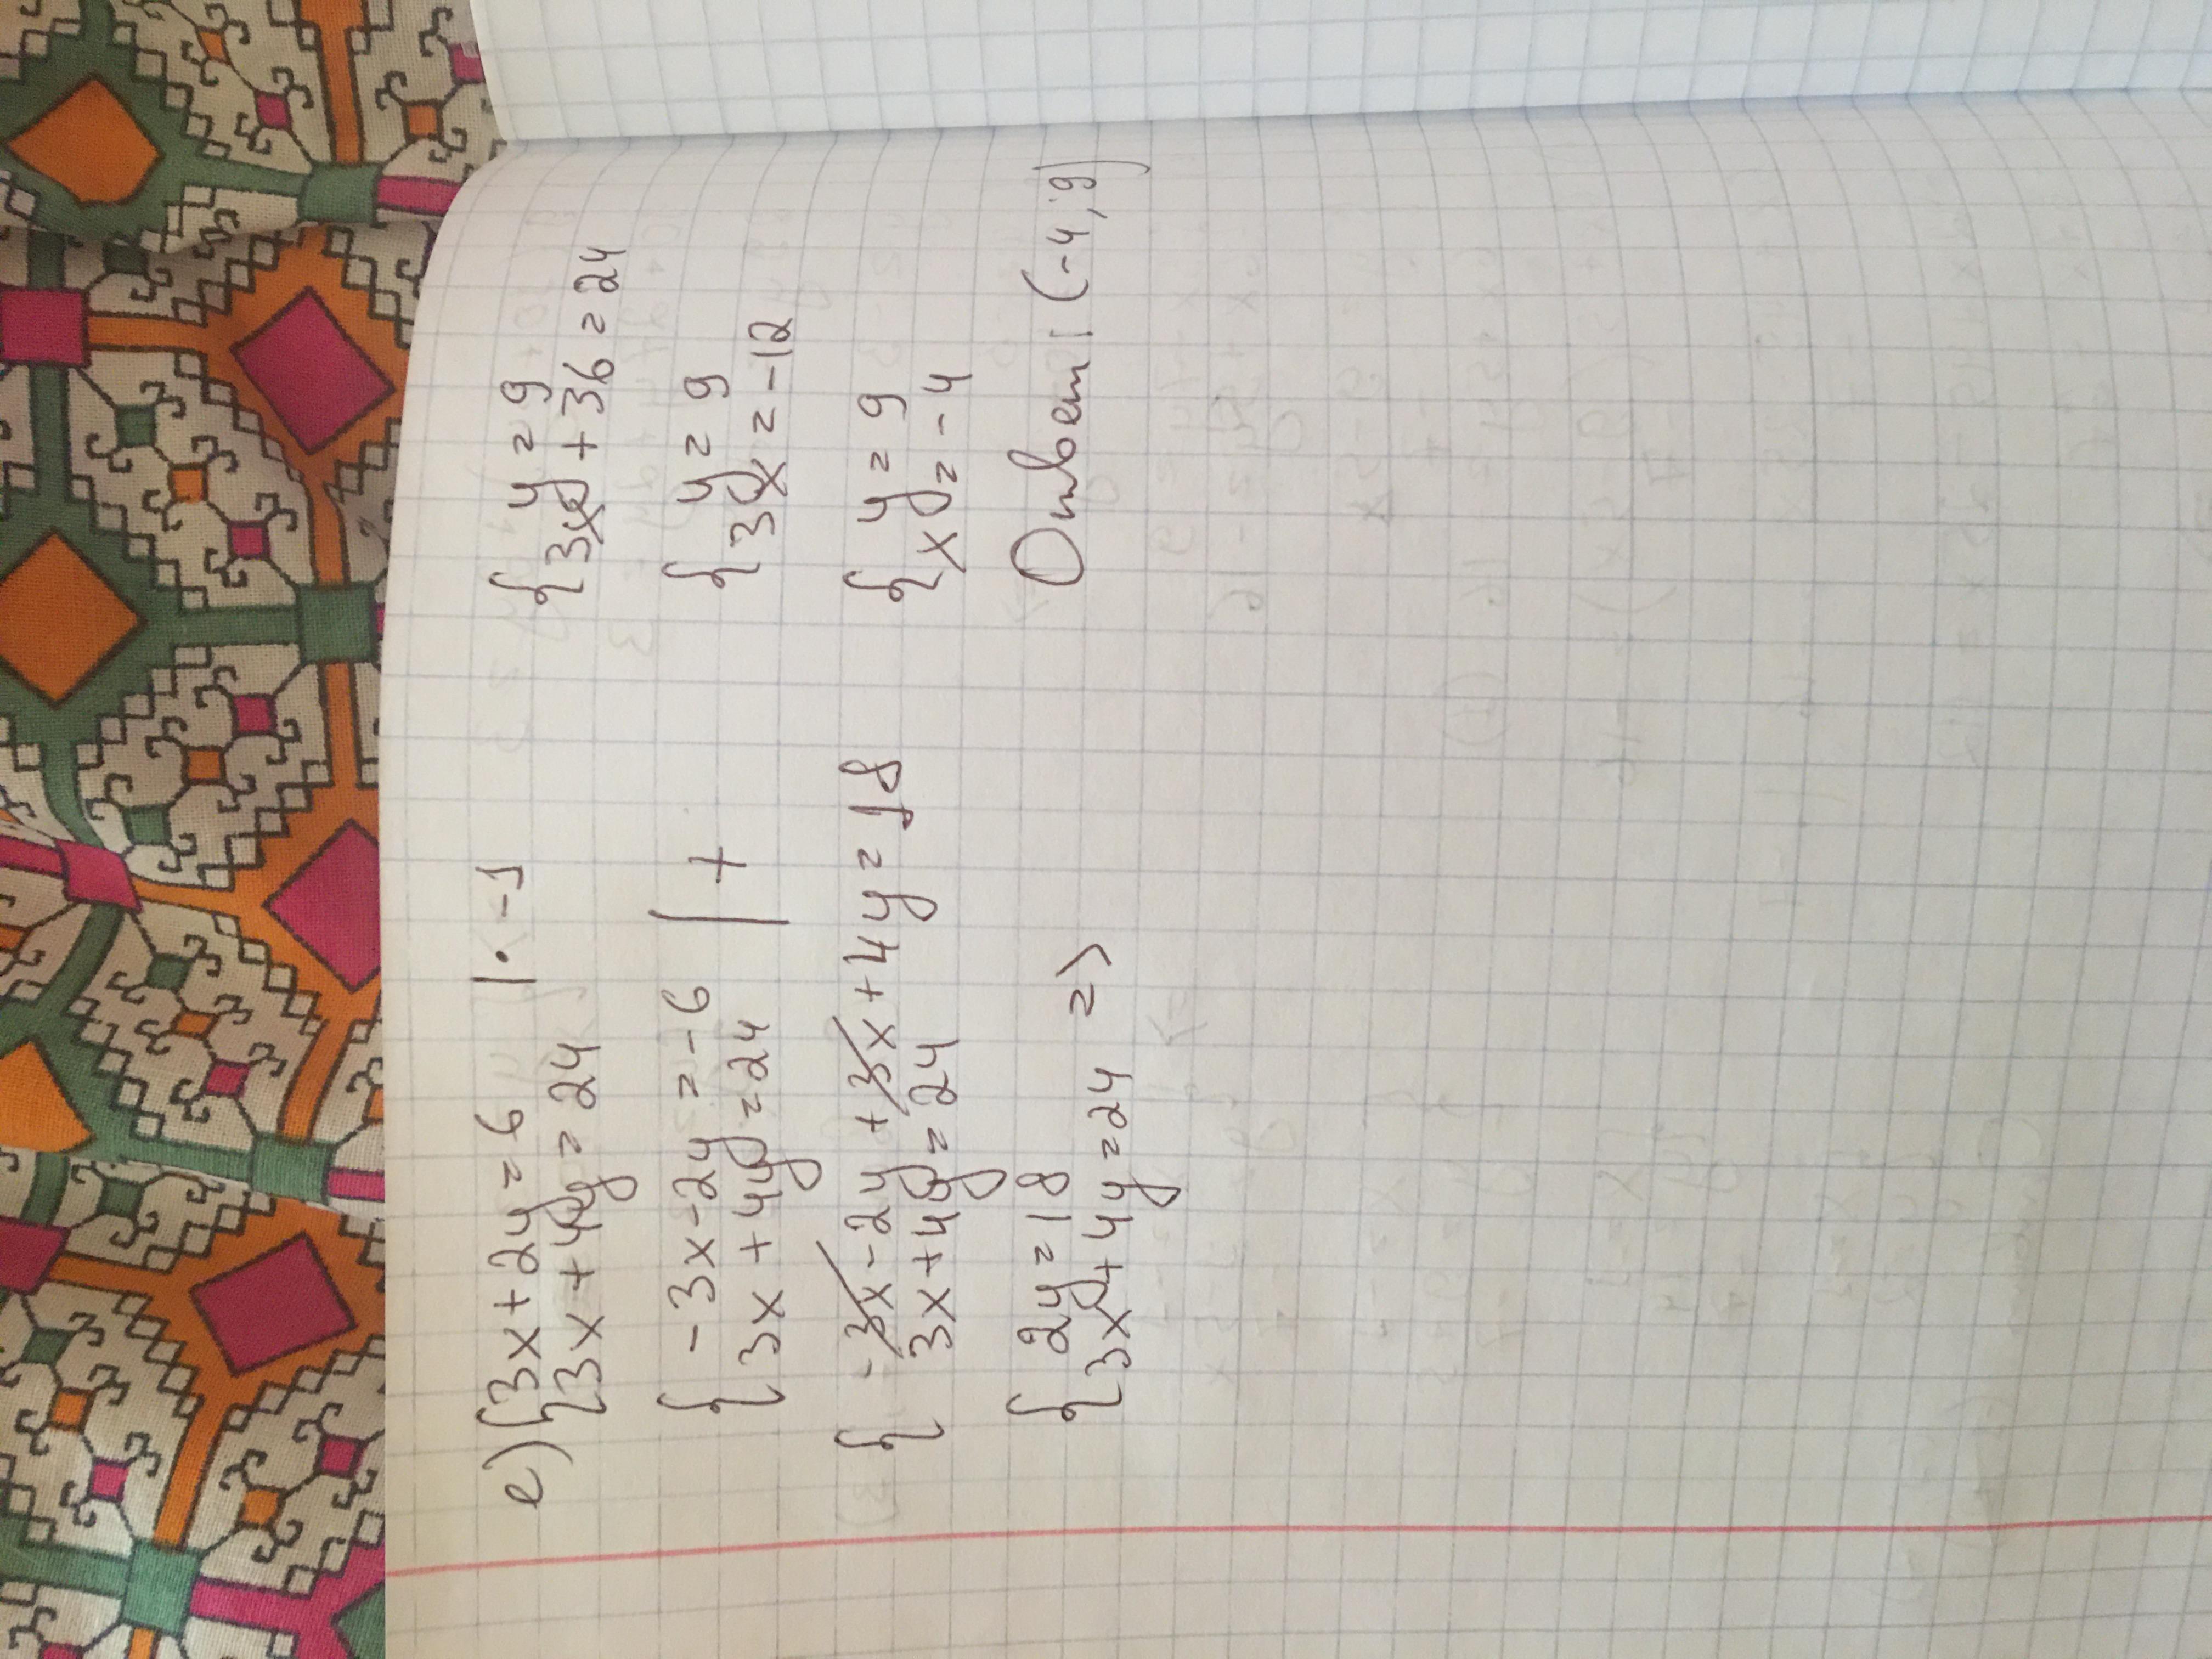 е) {3x+2y=6 |· -1
{3x+4y=24
{-3x-2y=-6 | +
{3x+4y=24
{-3x-2y+3x+4y=18
{3x+4y=24
{2y=18
{3x+4y=24 =>
{y=9
{3x+36=24
{y=9
{3x=-12
{y=9
{x=-4
Ответ: (-4,9)